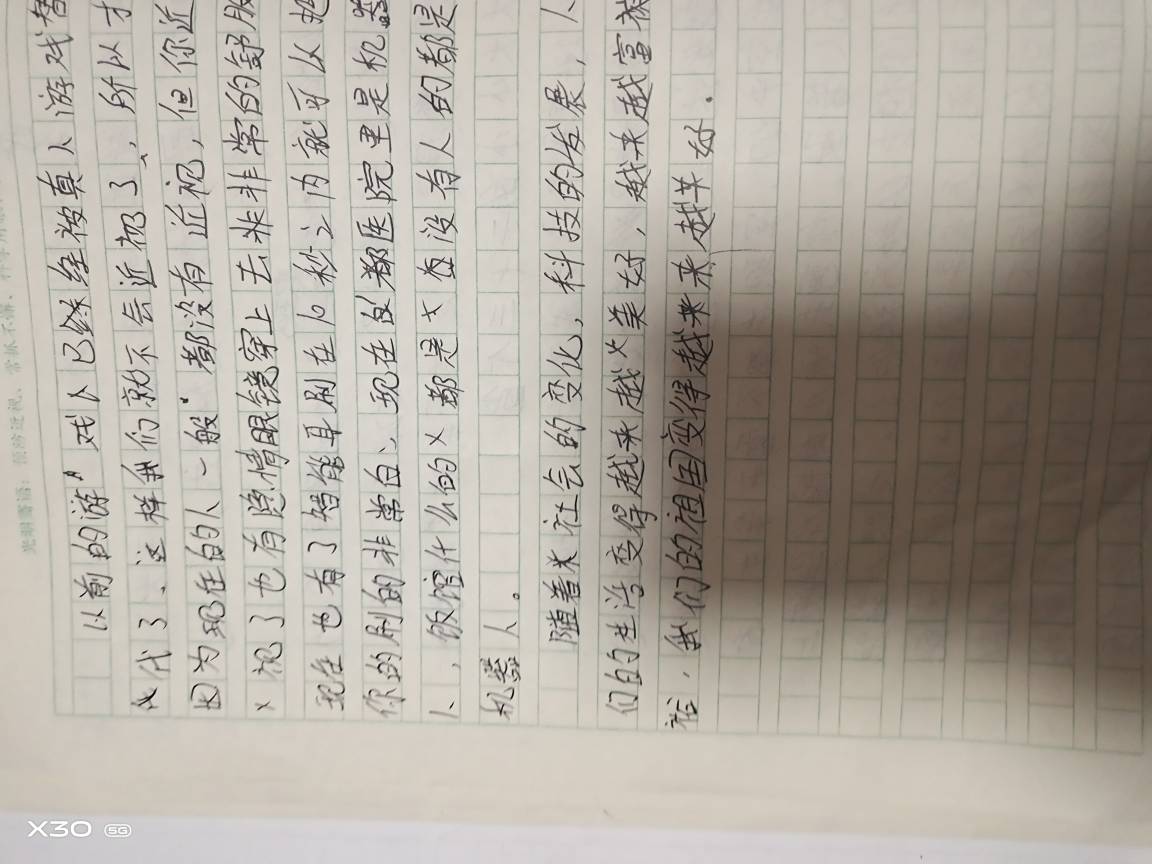 以前的游戏人已经被真人游戏替
代了、这样我们就不会近视了、所以才
因为现在的人一般都没有近视，但你近
视了也有隐情眼镜穿上去非非常的舒服
现在也有了智能耳刷在10秒之内就可以把
你的刷的非常白、现在的都医院里是机器
人，饭馆什么的都是没有人的都是
机器人。
随着社会的变化，科技的发展，人
们的生活变得越来越美好，越来越富裕
裕，我们的祖国变得越来越来越美好．
X30 5G